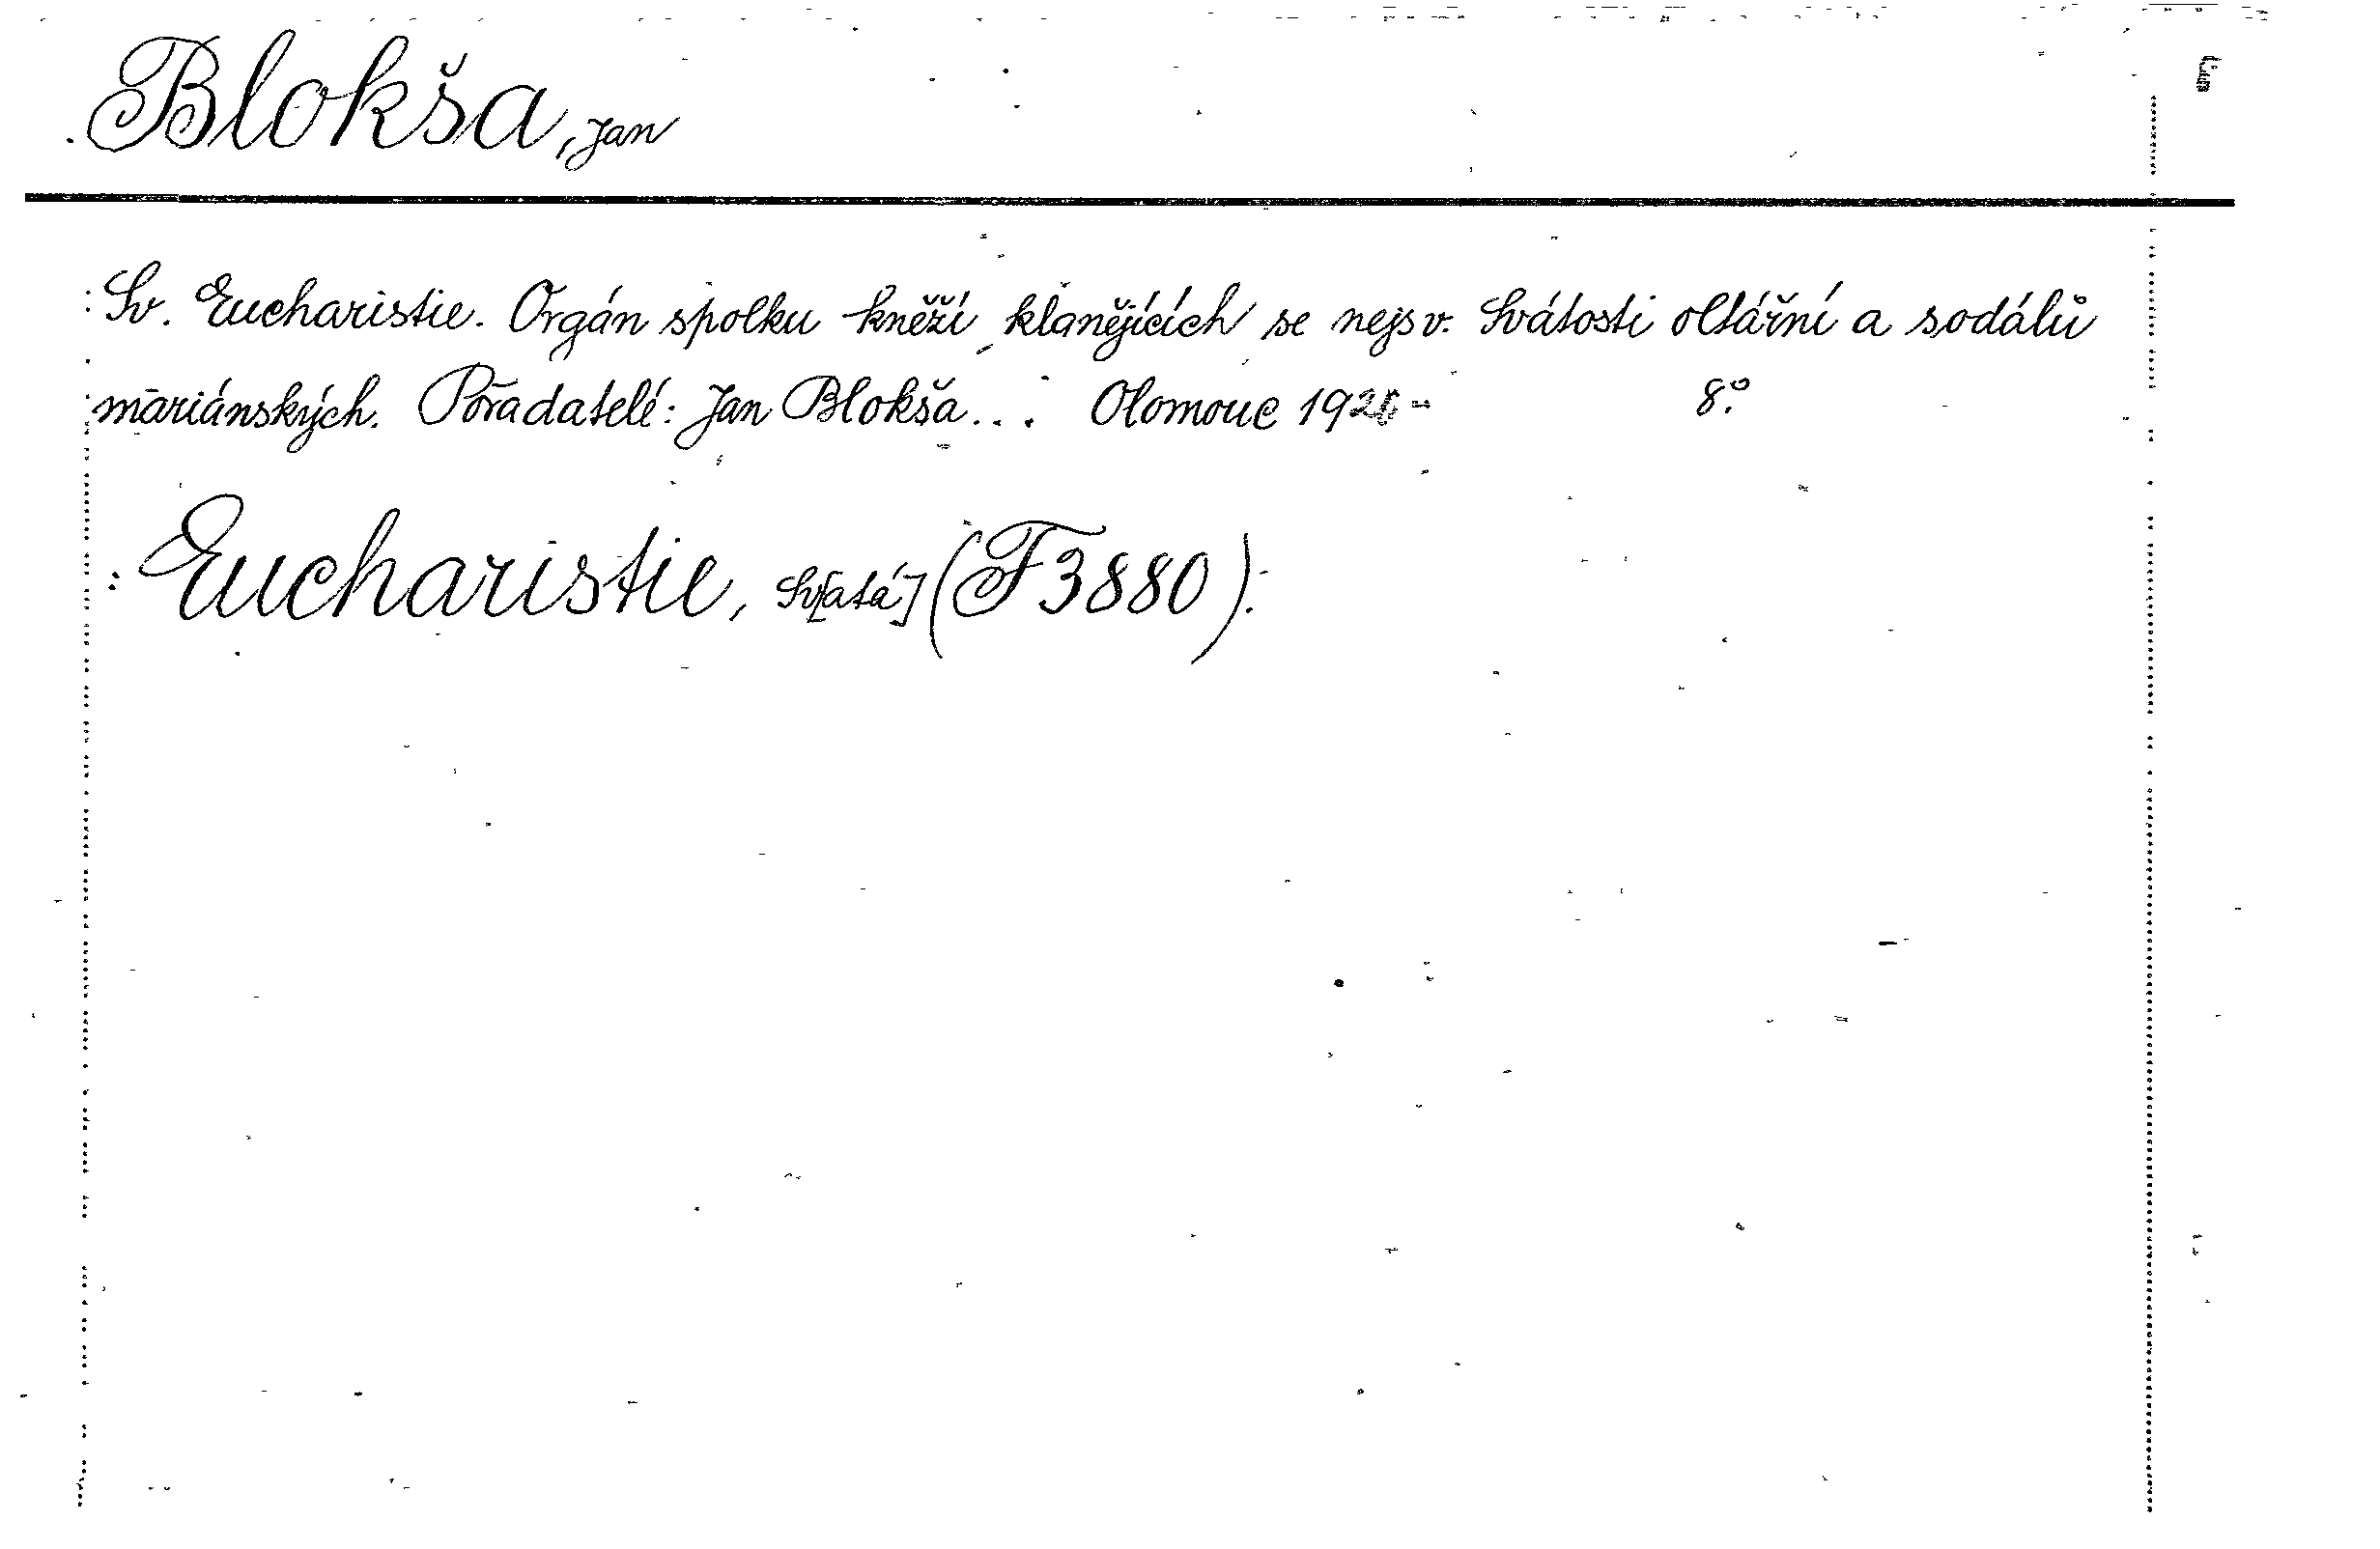 Blokša, Jan
Sv. Eucharistie. Orgán spolku kněží klanějících se nejsv. Svátosti oltářní a sodálů
mariánských. Pořadatelé: Jan Blokša... Olomouc 8°.
Eucharistie, Sv[atá] (F 3880).